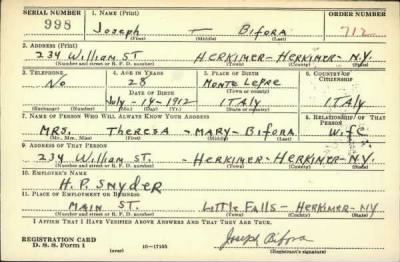 SERIAL NUMBER 1. NAME (Print) ORDER NUMBER
998 Joseph — Bifora 712
(First) (Middle) (Last)
2. ADDRESS (Print)
234 William ST HERKIMER-HERKIMER-N.Y.
(Number and street or R. F. D. number) (Town) (County) (State)
3. TELEPHONE 4. AGE IN YEARS 5. PLACE OF BIRTH 6. COUNTRY OF CITIZENSHIP
No 28 Monte Lepre
DATE OF BIRTH (Town or county)
July-14-1912 ITALY ITALY
(Exchange) (Number) (Mo.) (Day) (Yr.) (State or country)
7. NAME OF PERSON WHO WILL ALWAYS KNOW YOUR ADDRESS 8. RELATIONSHIP OF THAT PERSON
MRS. Theresa - MARY - Bifora Wife
(Mr., Mrs., Miss) (First) (Middle) (Last)
9. ADDRESS OF THAT PERSON
234 William ST. - HERKIMER-HERKIMER-N.Y.
(Number and street or R. F. D. number) (Town) (County) (State)
10. EMPLOYER'S NAME
H. P. Snyder
11. PLACE OF EMPLOYMENT OR BUSINESS
MAIN ST. Little Falls-HERKIMER-NY
(Number and street or R. F. D. number) (Town) (County) (State)
I AFFIRM THAT I HAVE VERIFIED ABOVE ANSWERS AND THAT THEY ARE TRUE.
REGISTRATION CARD
D. S. S. Form 1 (over) 16—17105 Joseph Bifora
(Registrant's signature)